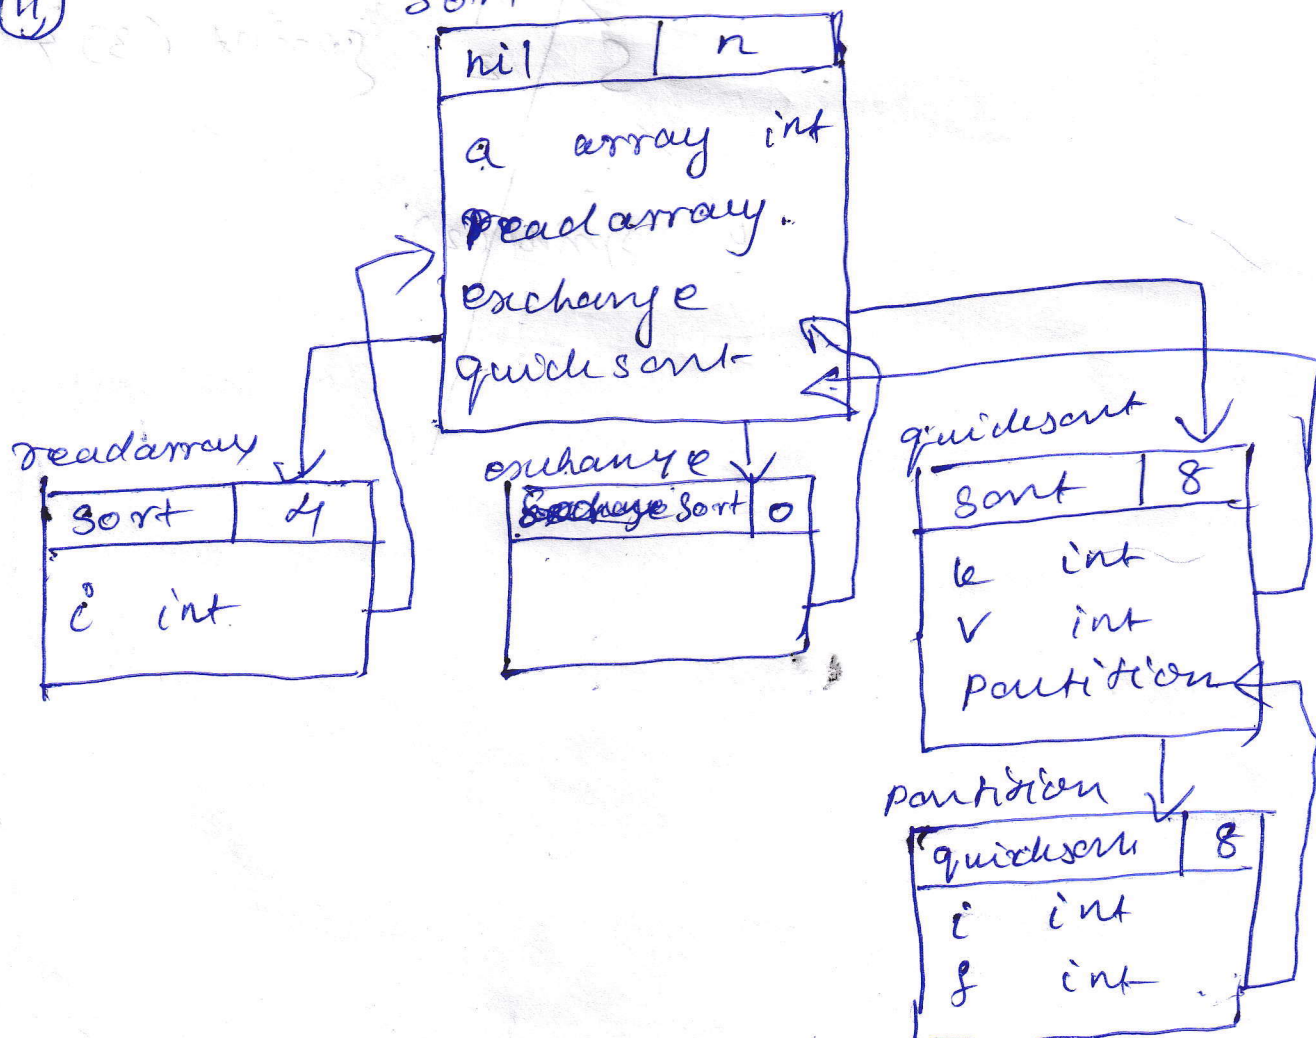 nil n
a array int
readarray.
exchange
quicksort
readarray
sort 4
i int
exchange
sort 0
quicksort
sort 8
k int
v int
partition
partition
quicksort 8
i int
int